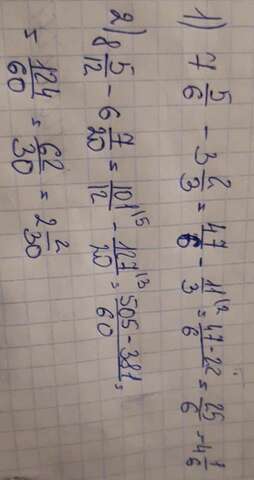 1) 7 5/6 - 3 2/3 = 47/6 - 11/3 ^(2 = 47-22/6 = 25/6 - 4 1/6
2) 8 5/12 - 6 7/20 = 101/12 ^(5 - 127/20 ^(3 = 505-381/60 =
= 124/60 = 62/30 = 2 2/30